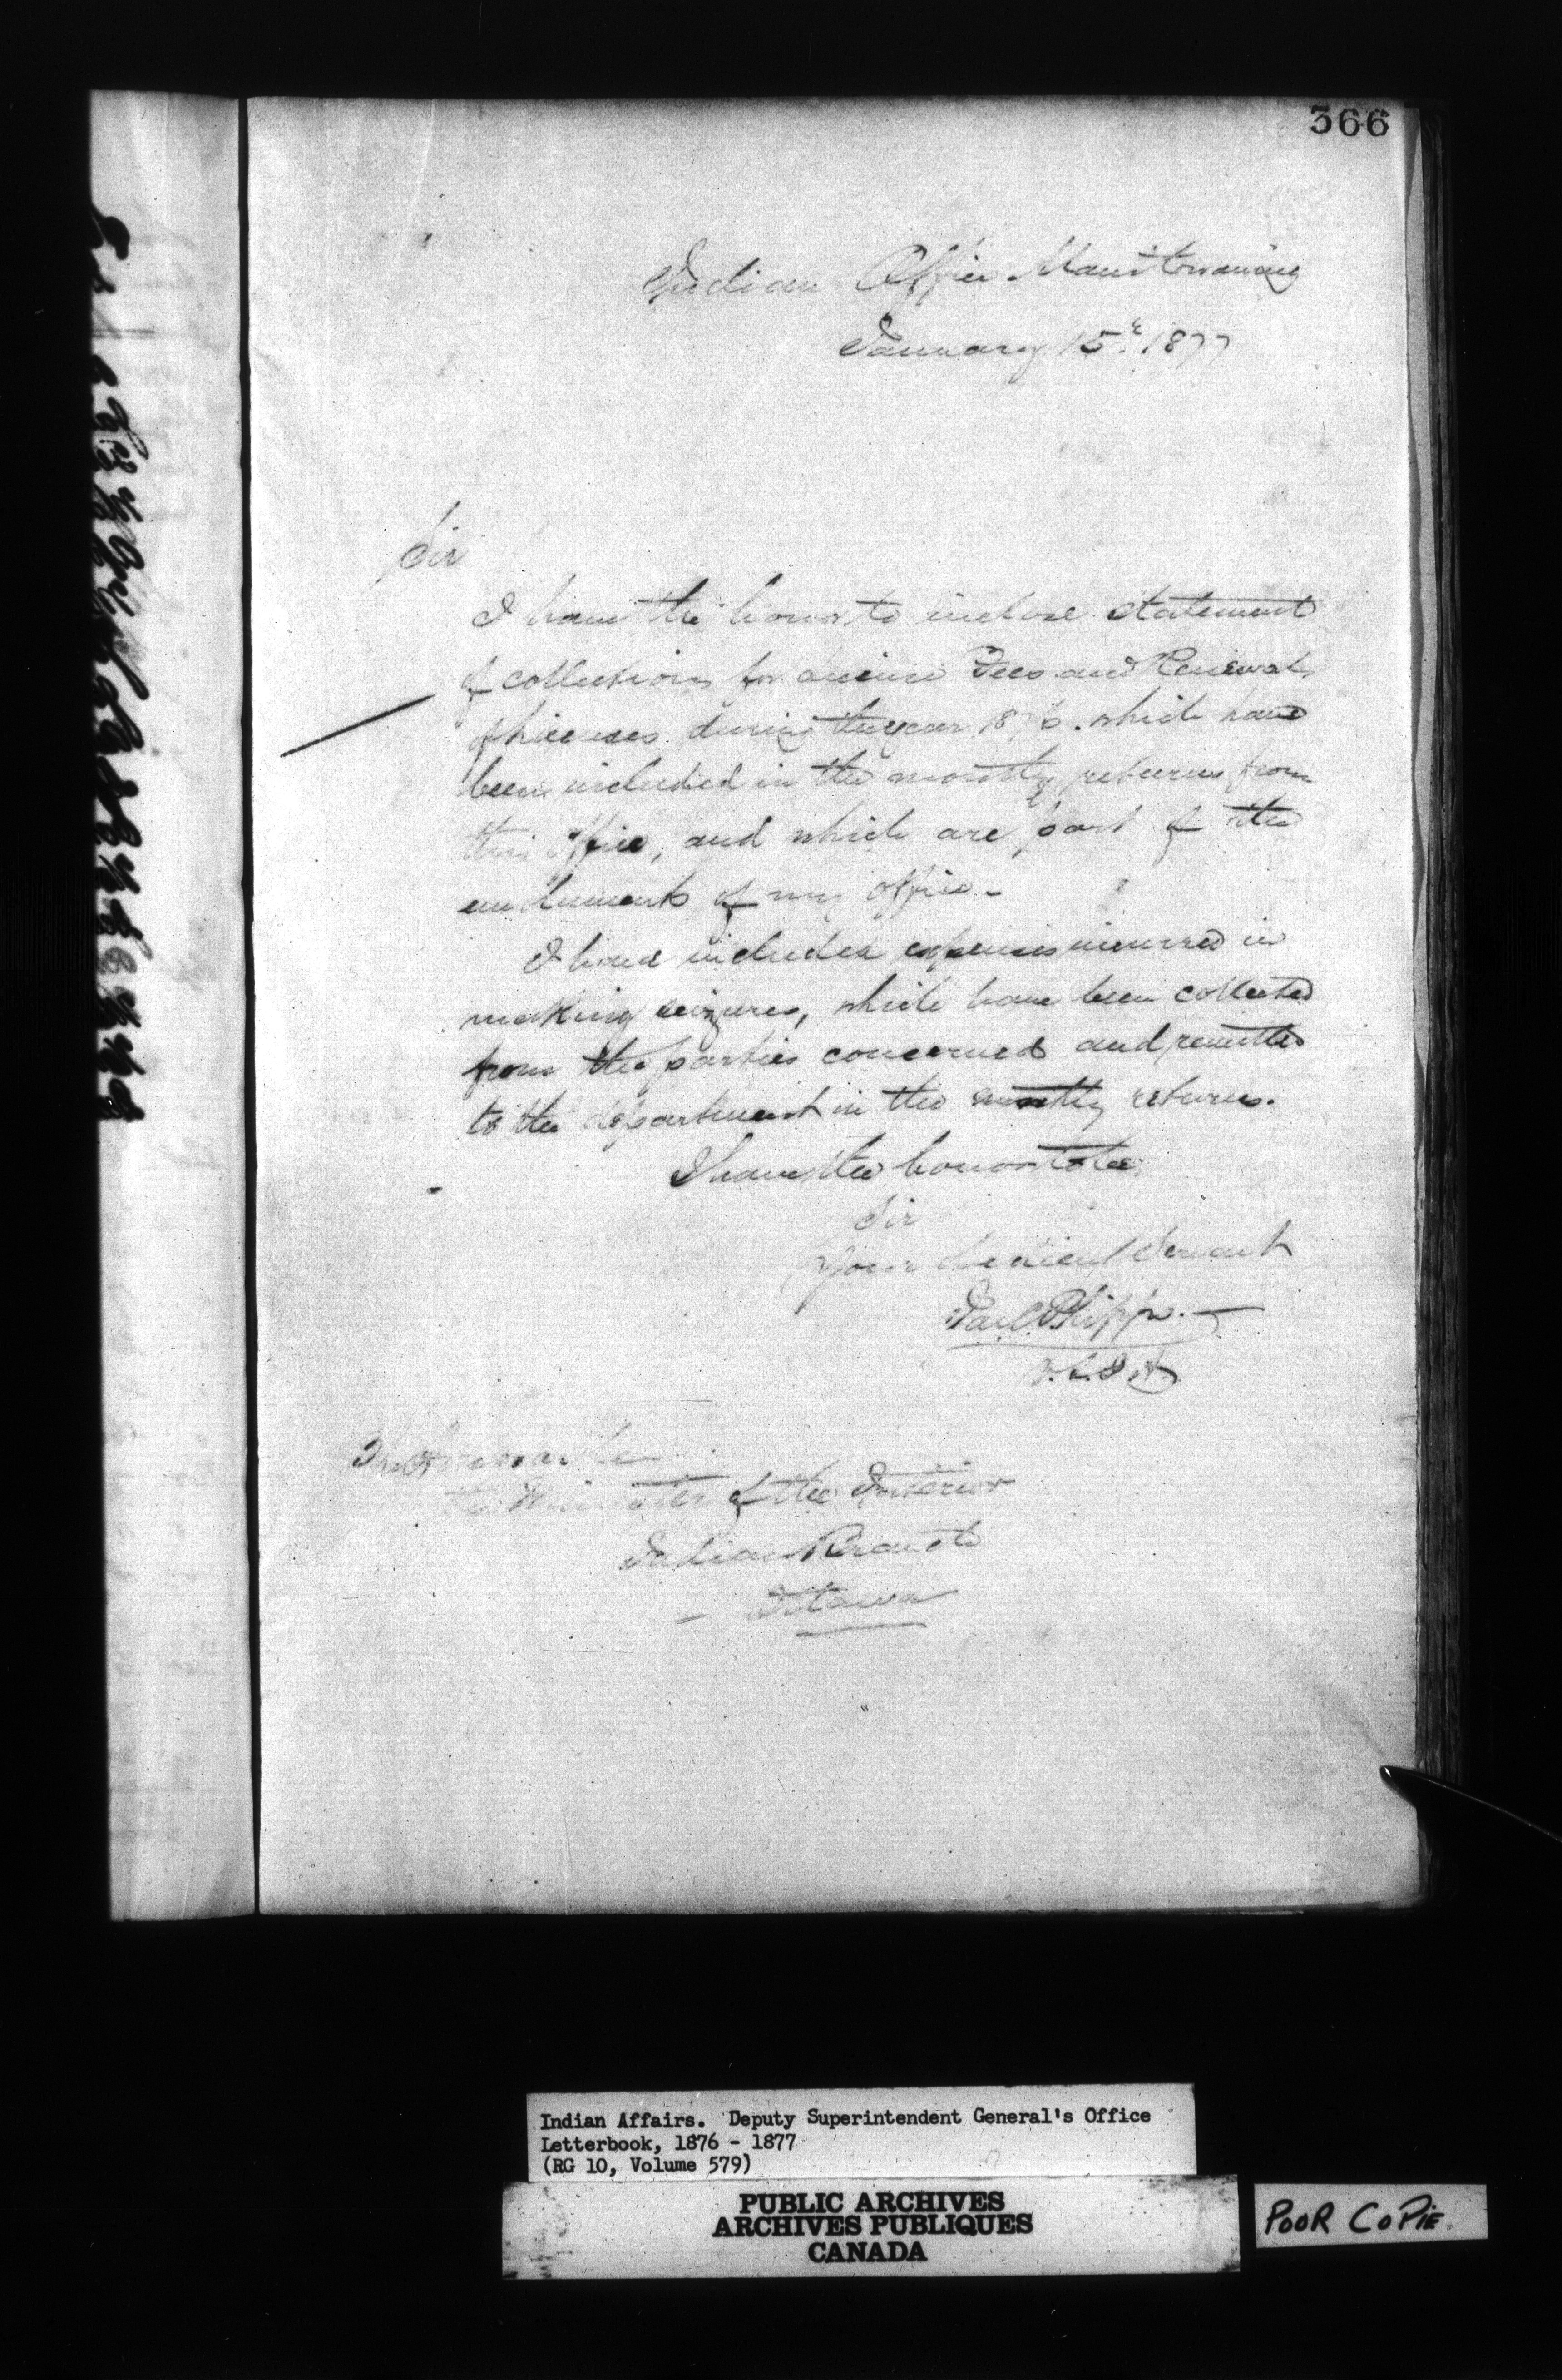 366
Indian Office Manitowaning
January 15th 1877
Sir
I have the honor to inclose statement
of collections for license Fees and Renewals
of licenses during the year 1876. which have
been included in the monthly returns from
this Office, and which are part of the
emoluments of my office.
I have included expenses incurred in
making seizures, which have been collected
from the parties concerned and remitted
to the department in the monthly returns.
I have the honor to be
Sir
Your obedient Servant
Phipps.
The Honorable
the Minister of the Interior
Indian Branch
Ottawa
Indian Affairs. Deputy Superintendent General's Office
Letterbook, 1876 - 1877
(RG 10, Volume 579)
PUBLIC ARCHIVES
ARCHIVES PUBLIQUES
CANADA
POOR COPIE